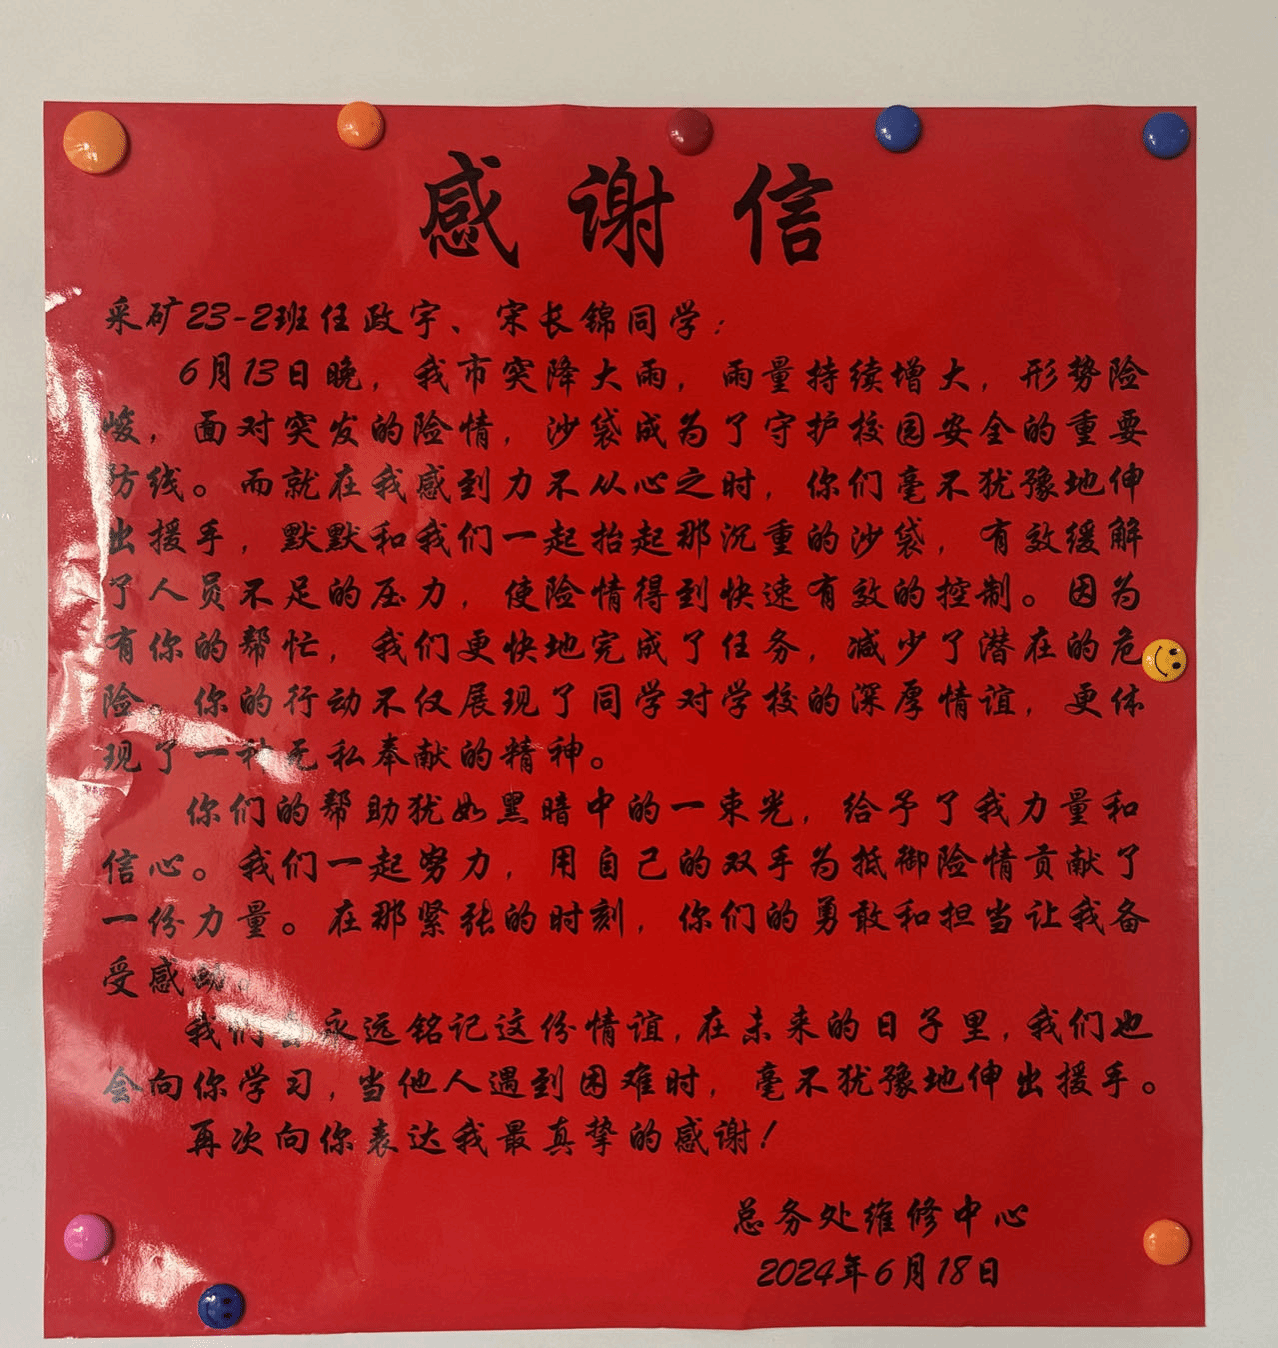 感谢信
采矿23-2班任政宇、宋长锦同学：
6月13日晚，我市突降大雨，雨量持续增大，形势险
峻，面对突发的险情，沙袋成为了守护校园安全的重要
防线。而就在我感到力不从心之时，你们毫不犹豫地伸
出援手，默默和我们一起抬起那沉重的沙袋，有效缓解
了人员不足的压力，使险情得到快速有效的控制。因为
有你的帮忙，我们更快地完成了任务，减少了潜在的危
险。你的行动不仅展现了同学对学校的深厚情谊，更体
现了一种无私奉献的精神。
你们的帮助犹如黑暗中的一束光，给予了我力量和
信心。我们一起努力，用自己的双手为抵御险情贡献了
一份力量。在那紧张的时刻，你们的勇敢和担当让我备
受感动。
我们会永远铭记这份情谊，在未来的日子里，我们也
会向你学习，当他人遇到困难时，毫不犹豫地伸出援手。
再次向你表达我最真挚的感谢！
总务处维修中心
2024年6月18日